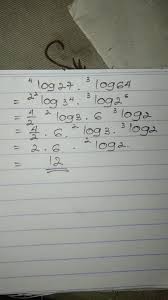 ⁴log27 . ³log64
= ²²log3⁴ . ³log2⁶
= 4/2 ²log3 . 6 ³log2
= 4/2 . 6 . ²log3 . ³log2
= 2 . 6 . ²log2
= 12